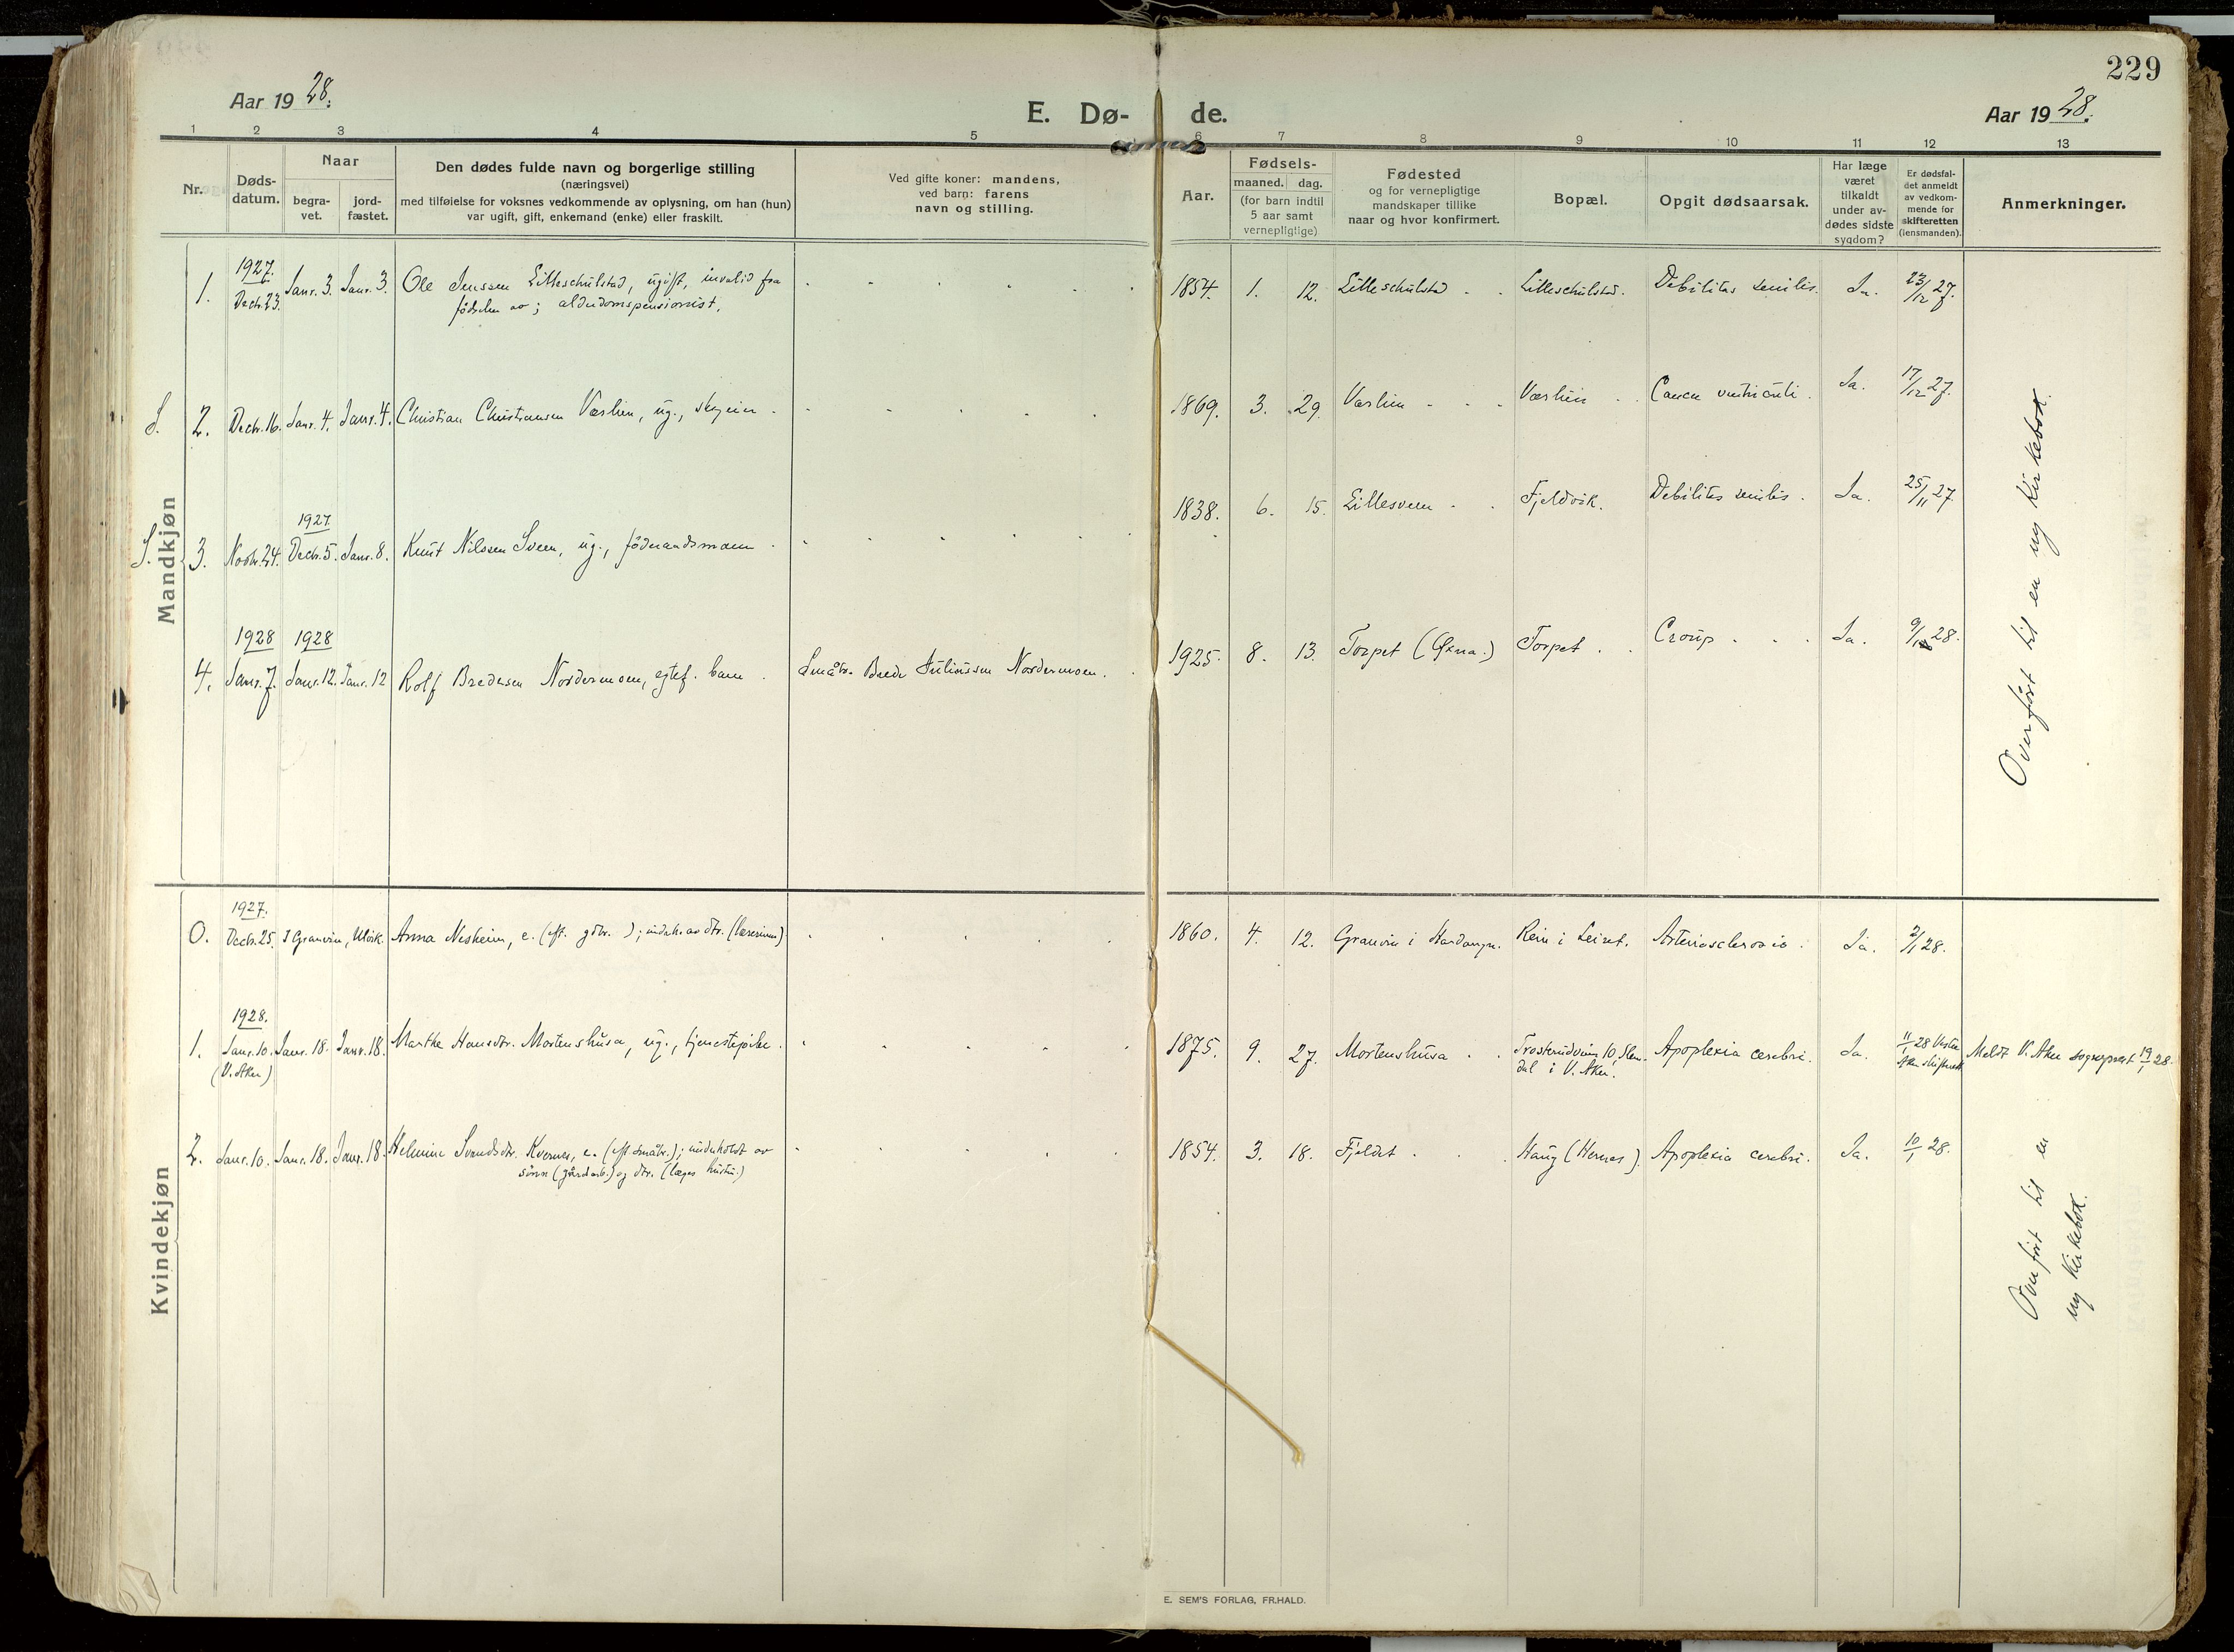 229
Aar 1928.
E. Dø-
de.
Aar 1928.
1 2 3 4 5 6 7 8 9 10 11 12 13
Nr.
Døds-
datum.
Naar
begra-
vet.
jord-
fæstet.
Den dødes fulde navn og borgerlige stilling
(næringsvei)
med tilføielse for voksnes vedkommende av oplysning, om han (hun)
var ugift, gift, enkemand (enke) eller fraskilt.
Ved gifte koner: mandens,
ved barn: farens
navn og stilling.
Aar.
Fødsels-
maaned. dag.
(for barn indtil
5 aar samt
vernepligtige)
Fødested
og for vernepligtige
mandskaper tillike
naar og hvor konfirmert.
Bopæl.
Opgit dødsaarsak.
Har læge
været
tilkaldt
under av-
dødes sidste
sygdom?
Er dødsfal-
det anmeldt
av vedkom-
mende for
skifteretten
(lensmanden).
Anmerkninger.
Mandkjøn
1927.
1. Decbr. 23. Janr. 3. Janr. 3. Ole Jenssen Lilleschulstad, ugift, invalid fra
fødselen av; alderdomspensionist.
1854. 1. 12. Lilleschulstad Lilleschulstad. Debilitas senilis. Ja. 23/12 27.
S. 2. Decbr. 16. Janr. 4. Janr. 4. Christian Christiansen Værlien, ug., skyeier
1869. 3. 29. Værlien Værlien Cancer ventriculi. Ja. 17/12 27.
1927.
S. 3. Novbr. 24. Decbr. 5. Janr. 8. Knut Nilssen Sveen, ug., føderaadsmann
1838. 6. 15. Lillesveen Fjeldvik. Debilitas senilis. Ja. 25/11 27
1928 1928
4. Janr. 7. Janr. 12. Janr. 12 Rolf Bredesen Nordermoen, egtef. barn. Småbr. Brede Juliussen Nordermoen.
1925. 8. 13. Torpet (Øxna.) Torpet Croup Ja. 9/1 28.
Overført til en ny kirkebok.
Kvindekjøn
1927.
0. Decbr. 25. I Granvin, Ulvik. Anna Nesheim, e. (eft. gdbr. ); underh. av dtr. (lærerinne)
1860. 4. 12. Granvin i Hardanger. Rein i Leiret. Arteriosclerosis. Ja. 2/1 28.
1928.
1. Janr. 10. Janr. 18. Janr. 18. Marthe Hansdtr. Mortenshusa, ug., tjenestepike
(V. Aker)
1875. 9. 27. Mortenshusa Trosterudveien 10, Slem-
dal i V. Aker. Apoplexia cerebri. Ja. 11/1 28 Vestre
Aker skifterett Meldt V. Aker sogneprest 19/1 28.
2. Janr. 10. Janr. 18. Janr. 18. Helmine Svendsdtr. Kvernes, e. (eft småbr.); underholdt av
sønn (gårdarb.) og dtr. (læges hustru.)
1854. 3. 18. Fjeldet Haug (Hernes). Apoplexia cerebri. Ja. 10/1 28.
Overført til en
ny kirkebok.
E. SEM'S FORLAG, FR.HALD.